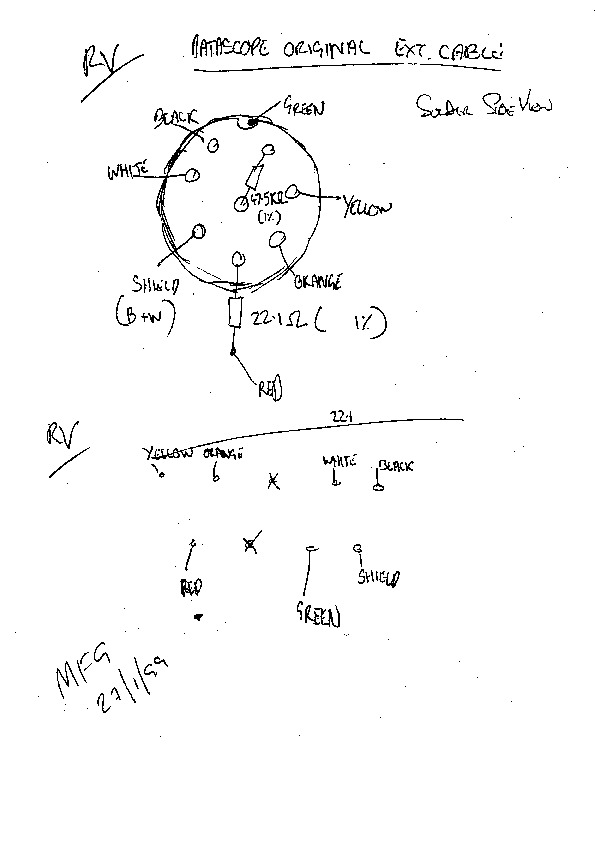 RV
DATASCOPE ORIGINAL EXT. CABLE
SOLDER SIDE VIEW
GREEN
BLACK
WHITE
47.5KΩ
(1%)
YELLOW
SHIELD
(B+W)
ORANGE
22.1Ω ( 1%)
RED
RV
22.1
YELLOW ORANGE
WHITE BLACK
RED
SHIELD
GREEN
MFG
27/1/99